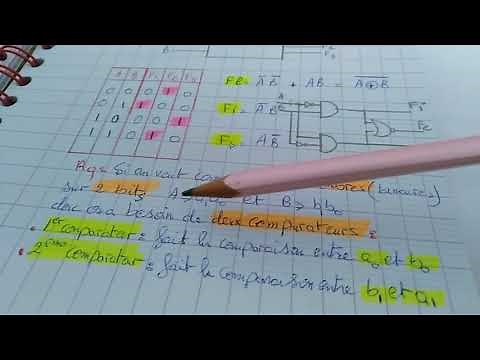 B
A B
0 0 0 1 0
0 1 1 0 0
1 0 0 0 1
1 1 0 1 0
FE = A̅ B̅ + AB = \overline{A⊕B}
Fi = A̅ B
Fs = A B̅
A
Fi
FE
Rq = Si on veut (binaires)
sur 2 bits A et B
donc on a besoin de deux comparateurs :
1er comparateur = fait la comparaison entre a0 et b0
2ème comparateur = fait la comparaison entre b1 et a1